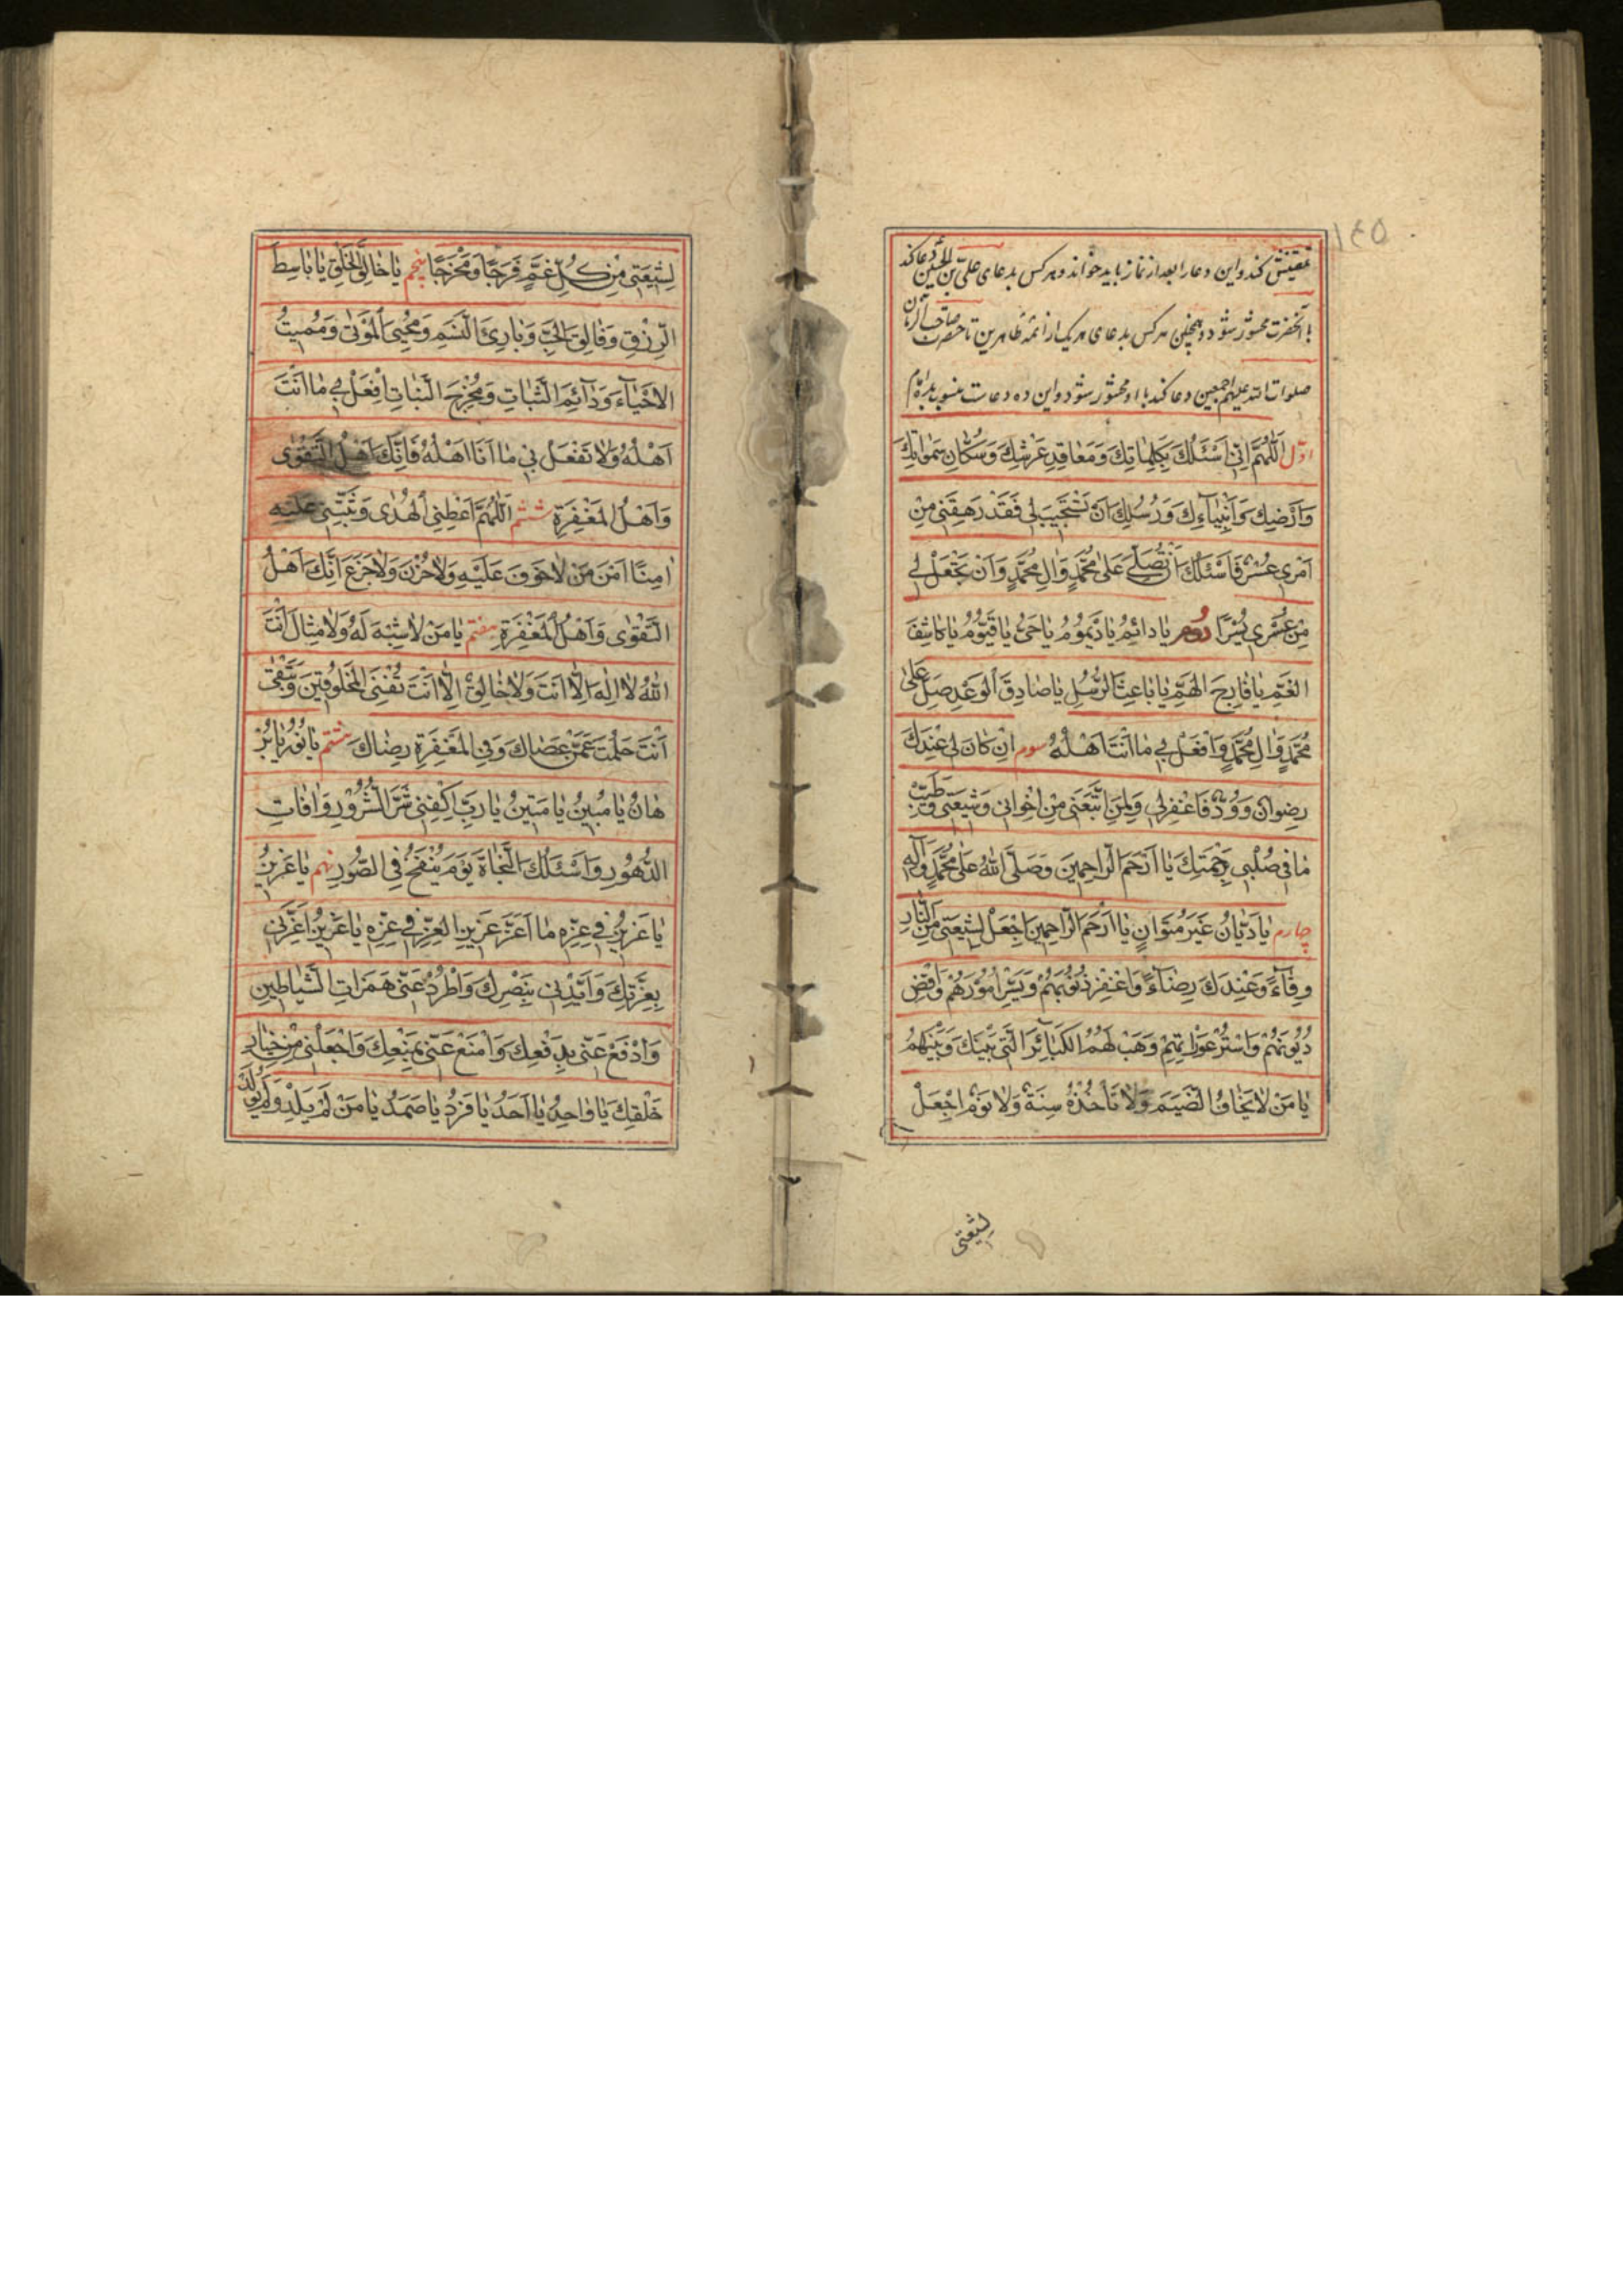 ١٤٥
تحقیقش کند و این دعا را بعد از نماز باید خواند و هر کس بدعای علیّ بن الحُسَین دعا کند
با آنحضرت محشور شود و همچنین هر کس بدعای هر یک از ائمّه طاهرین تا حضرت صاحب الزمان
صلوات الله علیهم اجمعین دعا کند با او محشور شود و این ده دعاست منسوب بده امام
اوّل اَللّٰهُمَّ اِنّٖى اَسْئَلُكَ بِكَلِمٰاتِكَ وَمَعٰاقِدِ عَرْشِكَ وَسُكّٰانِ سَمٰوٰاتِكَ
وَاَرْضِكَ وَاَنْبِيٰآءِكَ وَرُسُلِكَ اَنْ تَسْتَجٖيبَ لٖى فَقَدْ رَهِقَنٖى مِنْ
اَمْرٖى عُسْرٌ فَاَسْئَلُكَ اَنْ تُصَلِّىَ عَلٰى مُحَمَّدٍ وَاٰلِ مُحَمَّدٍ وَاَنْ تَجْعَلَ لٖى
مِنْ عُسْرٖى يُسْرًا دوم يٰا دٰائِمُ يٰا دَيْمُومُ يٰا حَىُّ يٰا قَيُّومُ يٰا كٰاشِفَ
الْغَمِّ يٰا فٰارِجَ الْهَمِّ يٰا بٰاعِثَ الرُّسُلِ يٰا صٰادِقَ الْوَعْدِ صَلِّ عَلٰى
مُحَمَّدٍ وَاٰلِ مُحَمَّدٍ وَافْعَلْ بٖى مٰا اَنْتَ اَهْلُهُ سوم اِنْ كٰانَ لٖى عِنْدَكَ
رِضْوٰانٌ وَوُدٌّ فَاغْفِرْلٖى وَلِمَنِ اتَّبَعَنٖى مِنْ اِخْوٰانٖى وَشٖيعَتٖى وَطَيِّبْ
مٰا فٖى صُلْبٖى بِرَحْمَتِكَ يٰا اَرْحَمَ الرّٰاحِمٖينَ وَصَلَّى اللّٰهُ عَلٰى مُحَمَّدٍ وَاٰلِهِ
چهارم يٰا دَيّٰانُ غَيْرَ مُتَوٰانٍ يٰا اَرْحَمَ الرّٰاحِمٖينَ اجْعَلْ لِشٖيعَتٖى مِنَ النّٰارِ
وِقٰآءً وَعِنْدَكَ رِضٰآءً وَاغْفِرْ ذُنُوبَهُمْ وَيَسِّرْ اُمُورَهُمْ وَاقْضِ
دُيُونَهُمْ وَاسْتُرْ عَوْرٰاتِهِمْ وَهَبْ لَهُمُ الْكَبٰائِرَ الَّتٖى بَيْنَكَ وَبَيْنَهُمْ
يٰا مَنْ لٰا يَخٰافُ الضَّيْمَ وَلٰا تَأْخُذُهُ سِنَةٌ وَلٰا نَوْمٌ اجْعَلْ
لِشٖيعَتٖى
لِشٖيعَتٖى مِنْ كُلِّ غَمٍّ فَرَجًا وَمَخْرَجًا پنجم يٰا خٰالِقَ الْخَلْقِ يٰا بٰاسِطَ
الرِّزْقِ وَفٰالِقَ الْحَبِّ وَبٰارِئَ النَّسَمِ وَمُحْيِىَ الْمَوْتٰى وَمُمٖيتَ
الْاَحْيٰآءِ وَدٰآئِمَ الثَّبٰاتِ وَمُخْرِجَ النَّبٰاتِ اِفْعَلْ بٖى مٰا اَنْتَ
اَهْلُهُ وَلٰا تَفْعَلْ بٖى مٰا اَنَا اَهْلُهُ فَاِنَّكَ اَهْلُ التَّقْوٰى
وَاَهْلُ الْمَغْفِرَةِ ششم اَللّٰهُمَّ اَعْطِنِى الْهُدٰى وَثَبِّتْنٖى عَلَيْهِ
اٰمِنًا اَمْنَ مَنْ لٰا خَوْفَ عَلَيْهِ وَلٰا حُزْنَ وَلٰا جَزَعَ اِنَّكَ اَهْلُ
التَّقْوٰى وَاَهْلُ الْمَغْفِرَةِ هفتم يٰا مَنْ لٰا شِبْهَ لَهُ وَلٰا مِثٰالَ اَنْتَ
اللّٰهُ لٰا اِلٰهَ اِلّٰا اَنْتَ وَلٰا خٰالِقَ اِلّٰا اَنْتَ تُفْنِى الْمَخْلُوقٖينَ وَتَبْقٰى
اَنْتَ حَلُمْتَ عَمَّنْ عَصٰاكَ وَفِى الْمَغْفِرَةِ رِضٰاكَ هشتم يٰا نُورُ يٰا بُرْ
هٰانُ يٰا مُبٖينُ يٰا مَتٖينُ يٰا رَبِّ اكْفِنٖى شَرَّ الشُّرُورِ وَاٰفٰاتِ
الدُّهُورِ وَاَسْئَلُكَ النَّجٰاةَ يَوْمَ يُنْفَخُ فِى الصُّورِ نهم يٰا عَزٖيزُ
يٰا عَزٖيزُ فٖى عِزِّهِ مٰا اَعَزَّ عَزٖيزَ الْعِزِّ فٖى عِزِّهِ يٰا عَزٖيزُ اَعِزَّنٖى
بِعِزَّتِكَ وَاَيِّدْنٖى بِنَصْرِكَ وَاطْرُدْ عَنّٖى هَمَزٰاتِ الشَّيٰاطٖينِ
وَادْفَعْ عَنّٖى بِدَفْعِكَ وَامْنَعْ عَنّٖى بِمَنْعِكَ وَاجْعَلْنٖى مِنْ خِيٰارِ
خَلْقِكَ يٰا وٰاحِدُ يٰا اَحَدُ يٰا فَرْدُ يٰا صَمَدُ يٰا مَنْ لَمْ يَلِدْ وَلَمْ يُولَدْ